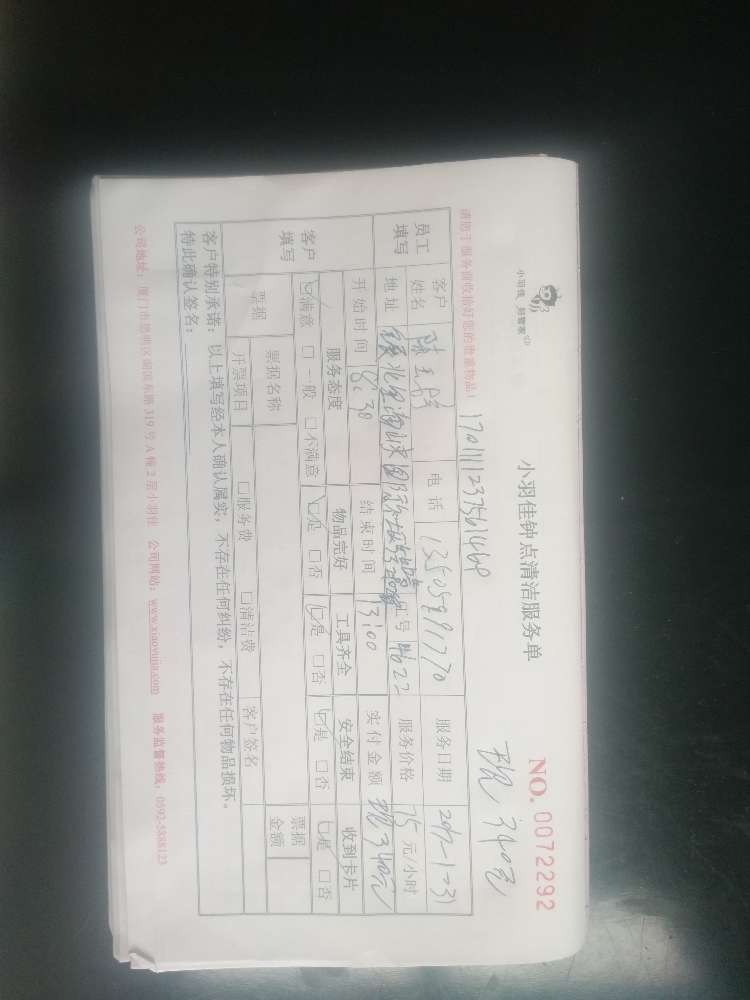 小羽佳 易管家
小羽佳钟点清洁服务单
NO. 0072292
现 340元
请您于服务前收捡好您的贵重物品！
员工填写
客户姓名
电话 13505991770
服务日期 2017-1-31
地址
服务价格 75元/小时
开始时间 8:30
结束时间 13:00
实付金额 现340元
客户填写
服务态度 物品完好 工具齐全 安全结束 收到卡片
☑满意 □一般 □不满意 ☑是 □否 ☑是 □否 ☑是 □否 ☑是 □否
票据 票据名称 票据金额
开票项目 □服务费 □清洁费 客户签名
客户特别承诺：以上填写经本人确认属实，不存在任何纠纷，不存在任何物品损坏。
特此确认签名：
公司地址：厦门市思明区 319号A幢2层小羽佳 公司网站：www.xiaoyujia.com 服务监督热线：0592-5888123